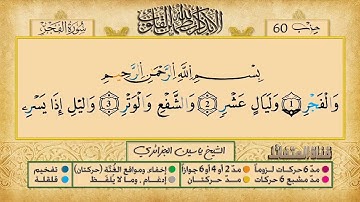 سُورَةُ الفَجْرِ
ألا بذكر الله تطمئن القلوب
حِزْب 60
بِسْمِ اللَّهِ الرَّحْمَنِ الرَّحِيمِ
وَالْفَجْرِ ① وَلَيَالٍ عَشْرٍ ② وَالشَّفْعِ وَالْوَتْرِ ③ وَالَّيْلِ إِذَا يَسْرِ
الشيخ ياسين الجزائري
مدّ 6 حركات لزوماً مدّ 2 أو 4 أو 6 جوازاً إخفاء ومواقع الغُنَّة (حركتان) تفخيم
مدّ مشبع 6 حركات مدّ حركتان إدغام , وما لا يُلفظ قلقلة